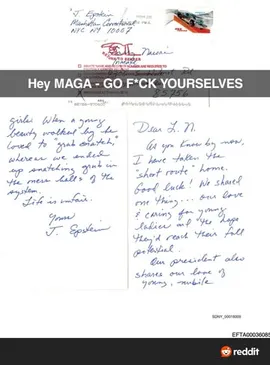 J. Epstein
Manhattan Correctional
NYC NY 10007
Larry Nassar
Hey MAGA - GO F*CK YOURSELVES
85756
girls. When a young
beauty walked by he
loved to "grab snatch,"
whereas we ended
up snatching grub in
the mess halls of the
system.
Life is unfair.
Yours
J. Epstein
Dear L. N.
As you know by now,
I have taken the
"short route" home.
Good luck! We shared
one thing... our love
& caring for young
ladies and the hope
they'd reach their full
potential.
Our president also
shares our love of
young, nubile
EFTA00036085
reddit